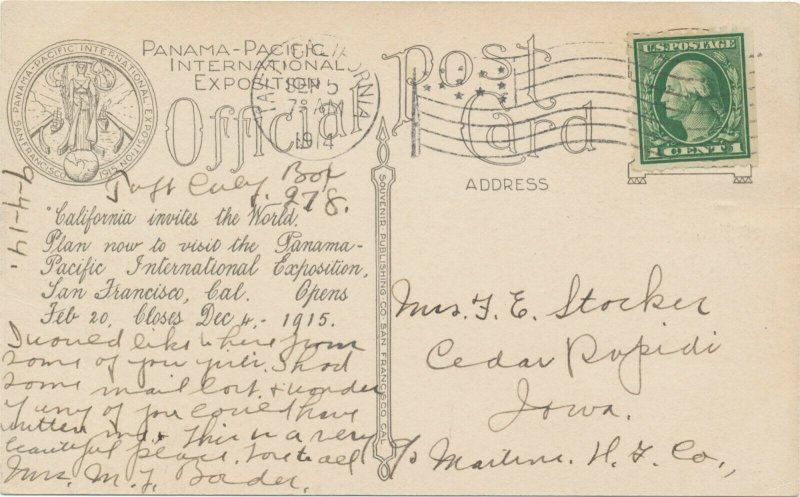 PANAMA-PACIFIC INTERNATIONAL EXPOSITION
SAN FRANCISCO 1915
PANAMA-PACIFIC
INTERNATIONAL
EXPOSITION
Official Post Card
TAFT CALIFORNIA
SEP 5
7 AM
1914
U.S. POSTAGE
1 CENT 1
ADDRESS
9-4-14.
Taft Caly. Box
278.
"California invites the World.
Plan now to visit the Panama-
Pacific International Exposition,
San Francisco, Cal. Opens
Feb 20, Closes Dec 4,- 1915.
I would like to hear from
some of you girls. I had
some mail lost & wonder
if any of you could have
written me. This is a very
beautiful place. Love to all
Mrs. M. J.
SOUVENIR PUBLISHING CO. SAN FRANCISCO CAL.
Mrs. F. E. Stocker
Cedar Rapids
Iowa.
c/o Martin H. F. Co.,